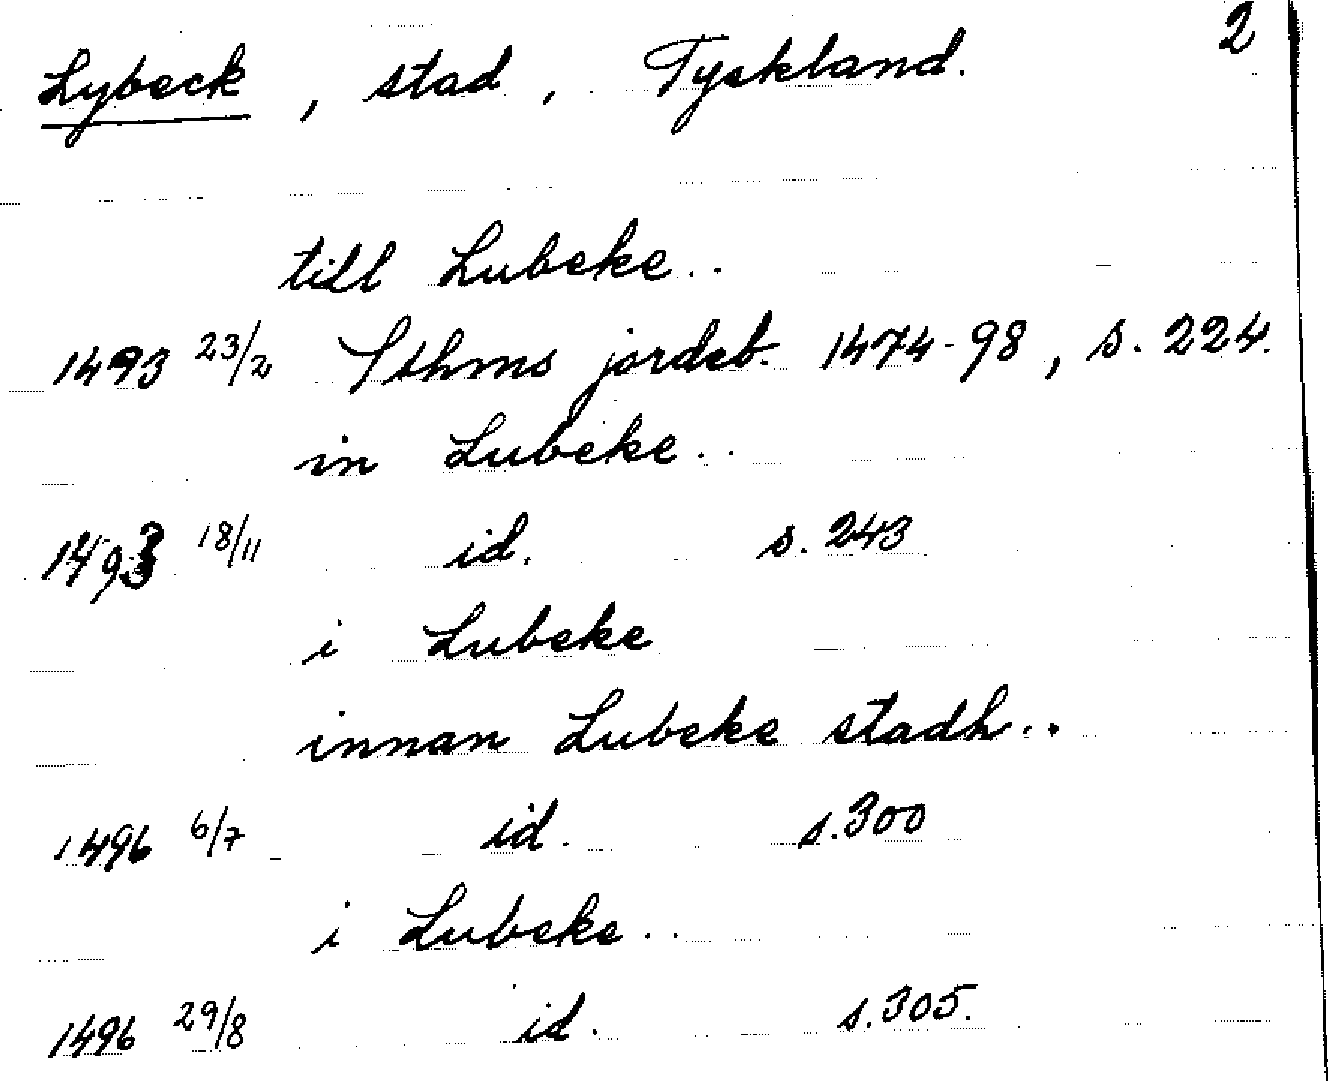 Lybeck, stad, Tyskland. 2
till Lubeke..
1493 23/2 Sthms jordeb. 1474-98, s. 224.
in Lubeke..
1493 18/11 id. s. 243
i Lubeke
innan Lubeke stadh..
1496 6/7 id. s. 300
i Lubeke..
1496 29/8 id. s. 305.